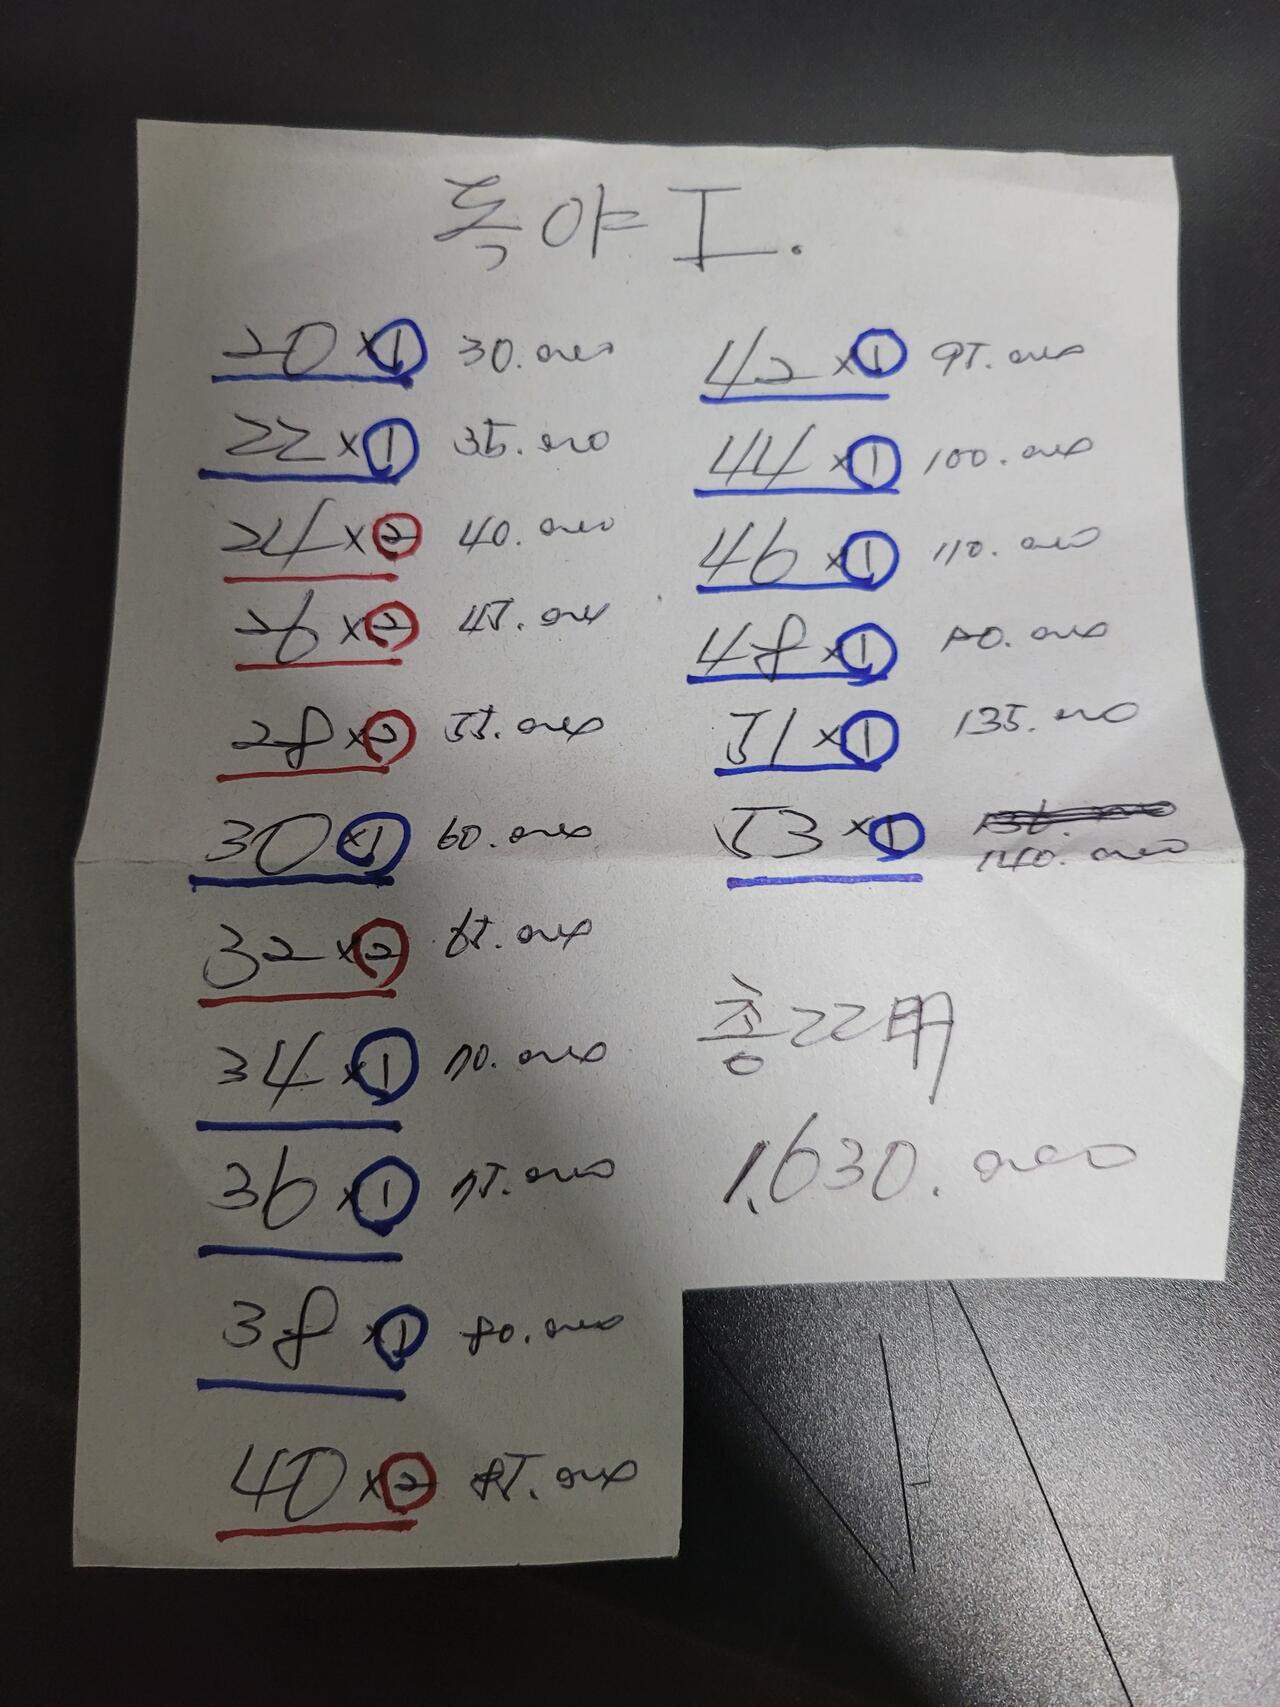 톡야 I.
20×1 30.000
22×1 35.000
24×2 40.000
26×2 45.000
28×2 55.000
30×1 60.000
32×2 65.000
34×1 70.000
36×1 75.000
38×1 80.000
40×2 85.000
42×1 95.000
44×1 100.000
46×1 110.000
48×1 120.000
51×1 135.000
53×1
140.000
총22
1.630.000